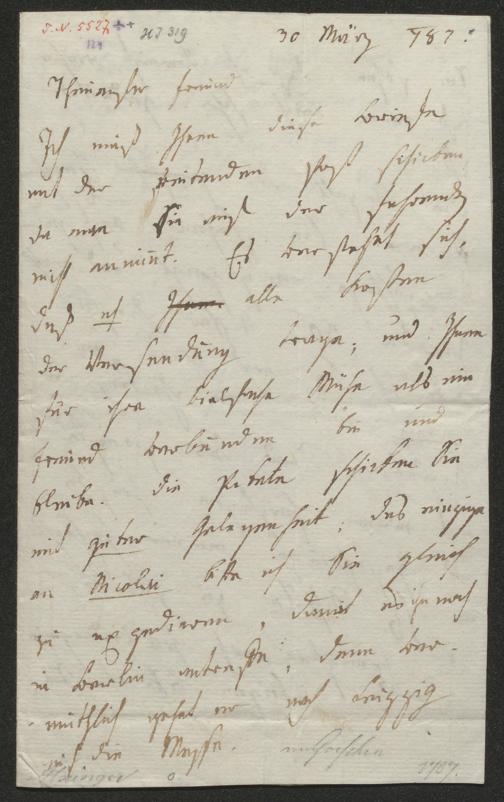 I.N. 5527
HJ 319
30 März 787.
Theuerster Freund
Ich muß Ihnen diese Briefe
mit der reitenden Post schicken
da man Sie auf der fahrenden
nicht annimt. Es versteht sich,
daß ich Ihnen alle Kosten
der Versendung trage, und Ihnen
für ihre vielfache Mühe als ein
Freund verbunden bin und
bleibe. Die Pakete schicken Sie
mit guter Gelegenheit; das einzige
an Nicolai bitte ich Sie gleich
zu expediren, damit es ihn noch
in Berlin antreffe, denn ver-
muthlich gehet er nach Leipzig
auf die Messe.
1787.